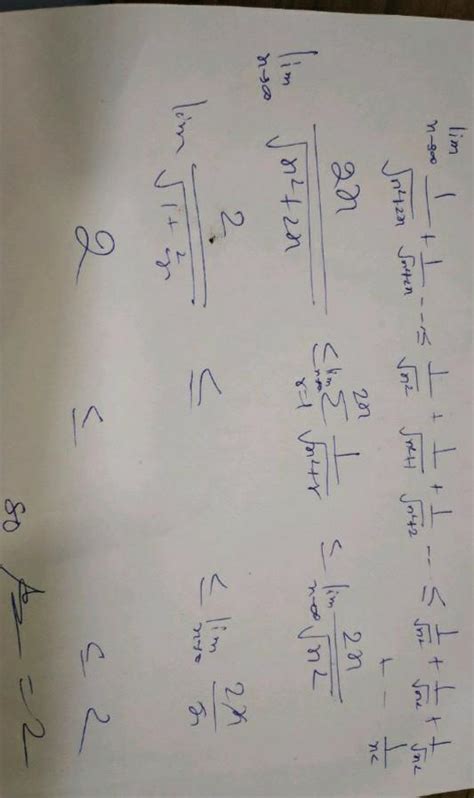 lim n→∞ 1/√(n²+2n) + 1/√(n²+2n) -- ≤ 1/√n² + 1/√(n²+1) + 1/√(n²+2) -- ≤ 1/√n² + 1/√n² + 1/√n²
+ -- 1/n²
lim n→∞ 2n/√(n²+2n) ≤ lim n→∞ 2n Σ r=1 1/√(n²+r) ≤ lim n→∞ 2n/√n²
lim 2/√(1+2/n) ≤ ≤ lim n→∞ 2n/n
2 ≤ ≤ 2
so = 2